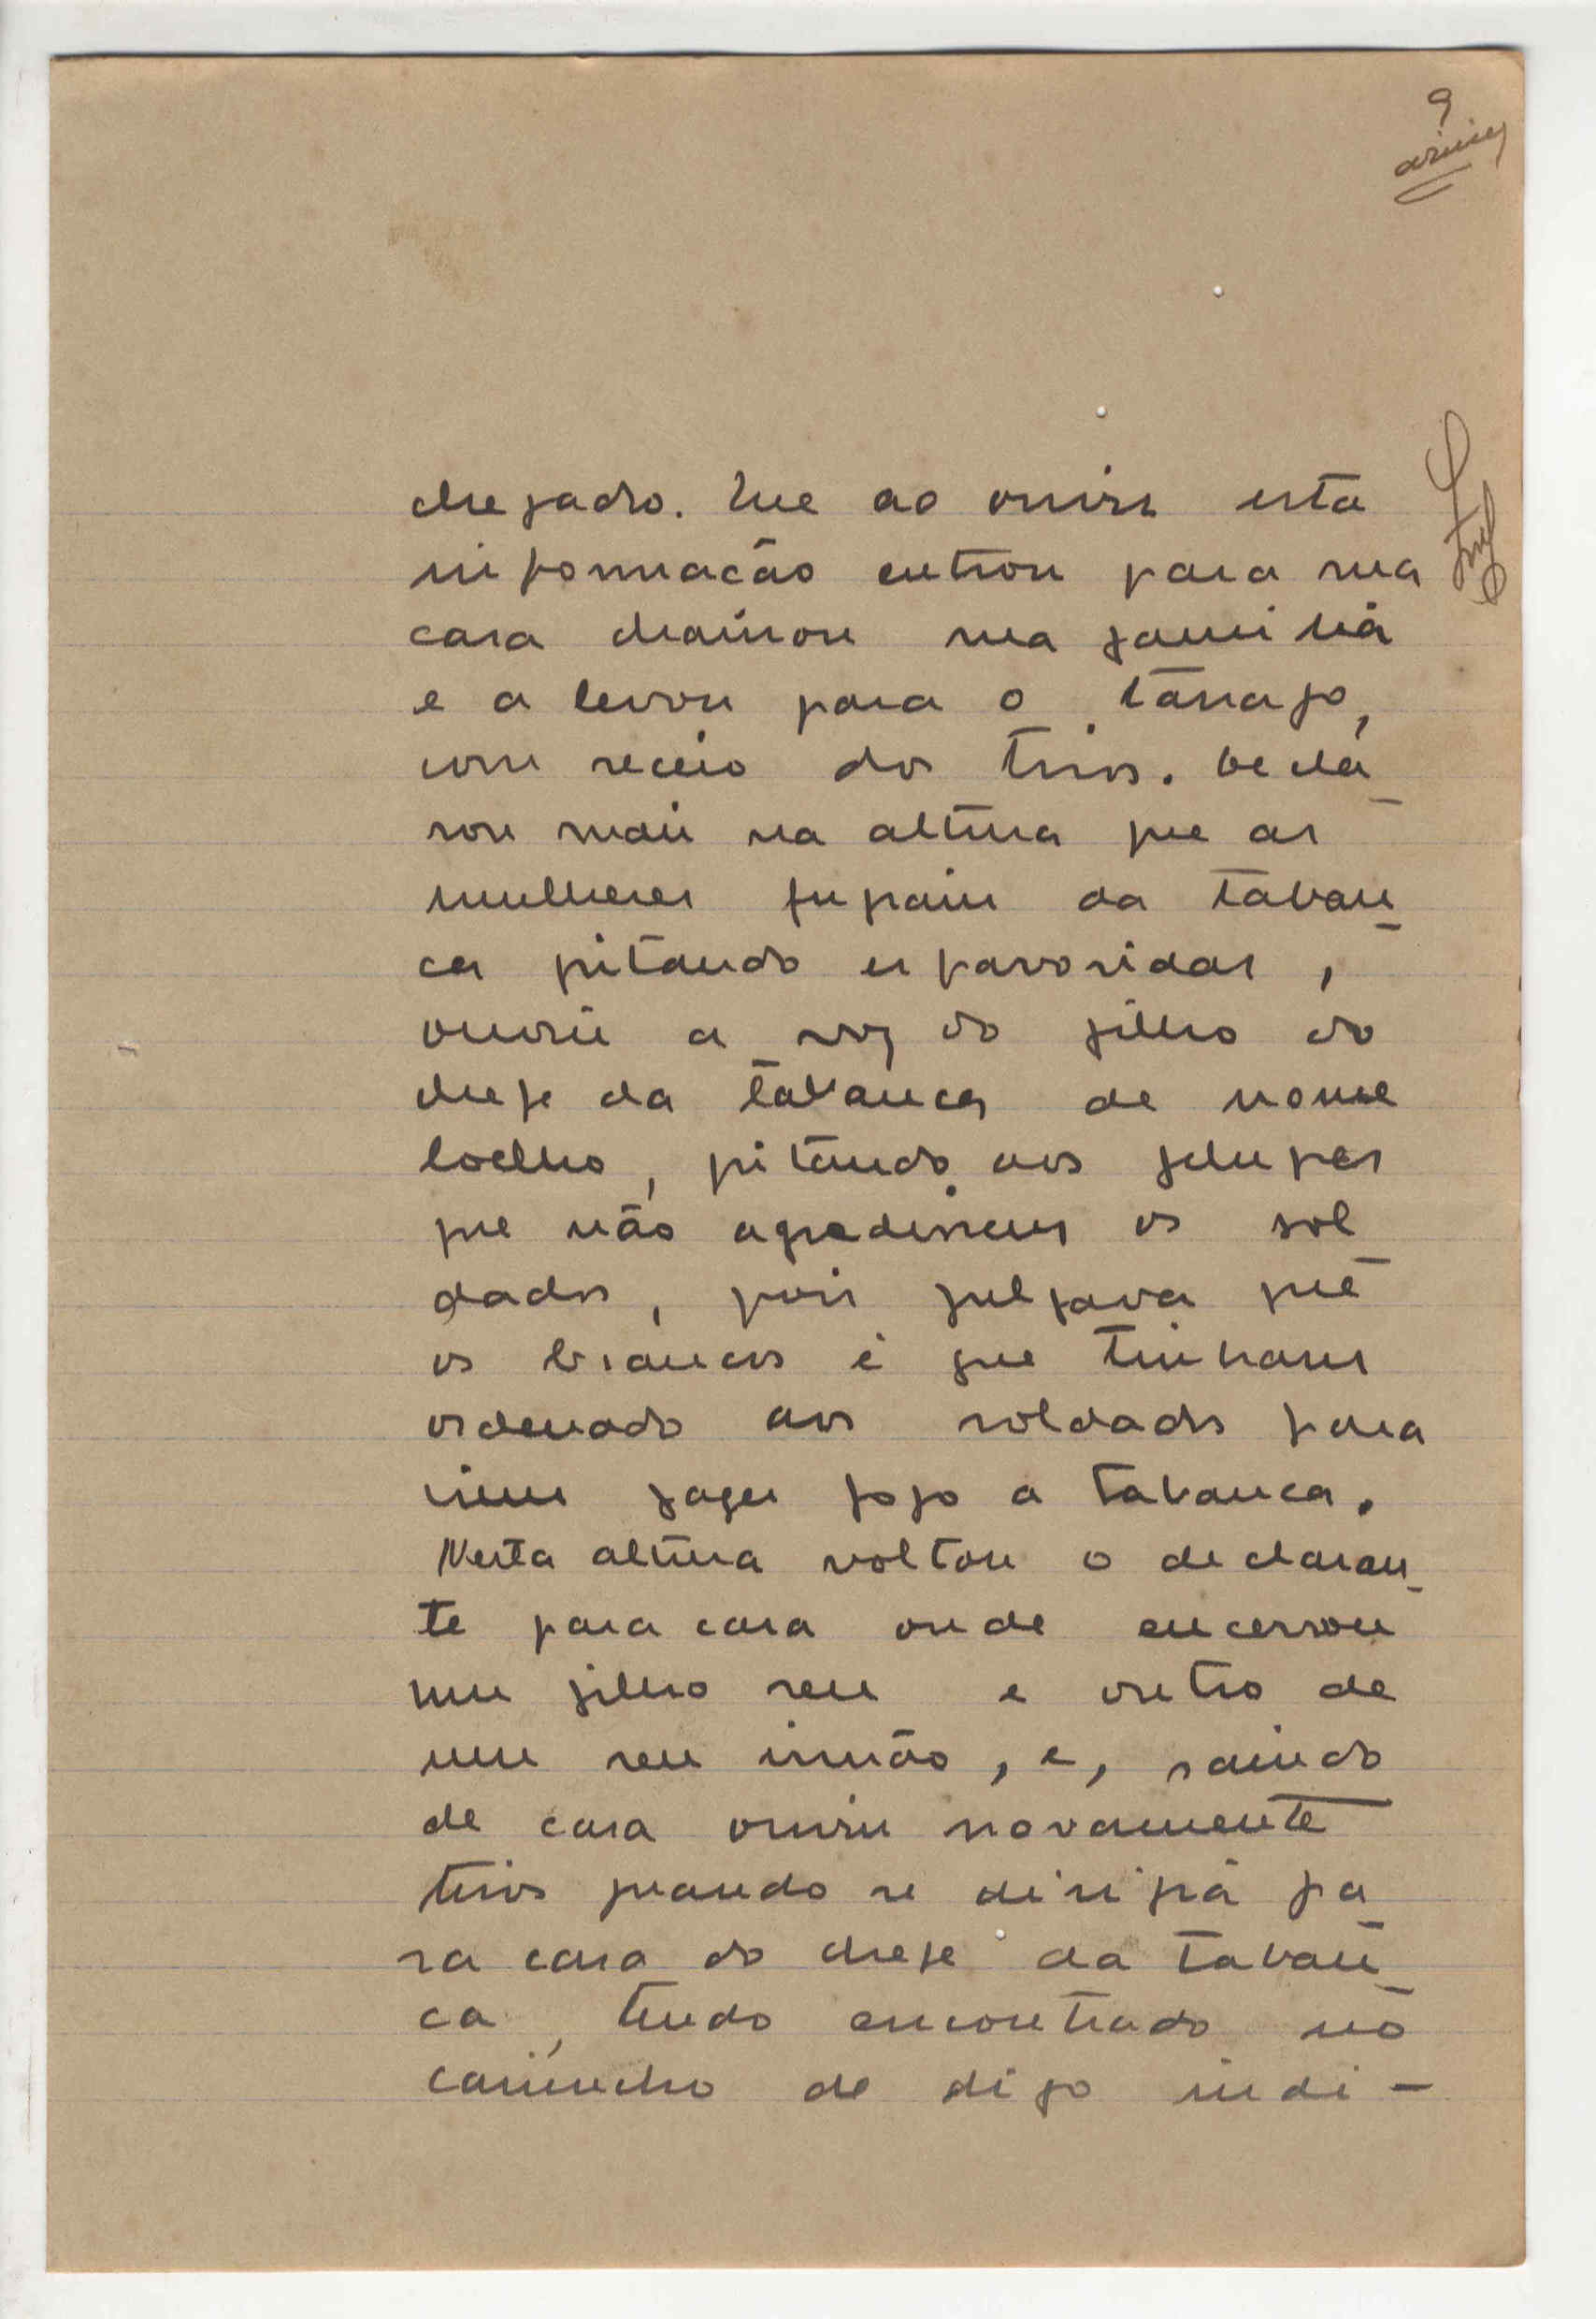 9
chegado. Que ao ouvir esta
informação entrou para sua
casa chamou sua familia
e a levou para o tarrafo,
com receio dos tiros. Decla
rou mais na altura que as
mulheres fugiam da taban
ca gritando espavoridas,
ouviu a voz do filho do
chefe da tabanca de nome
Coelho, gritando aos felupes
que não agredissem os sol
dados, pois julgava que
os brancos é que tinham
ordenado aos soldados para
virem fazer fogo a tabanca.
Nesta altura voltou o declaran
te para casa onde encerrou
um filho seu e outro de
um seu irmão, e, saindo
de casa ouviu novamente
tiros quando se dirigia pa
ra casa do chefe da taban
ca, tendo encontrado no
caminho de digo indi-